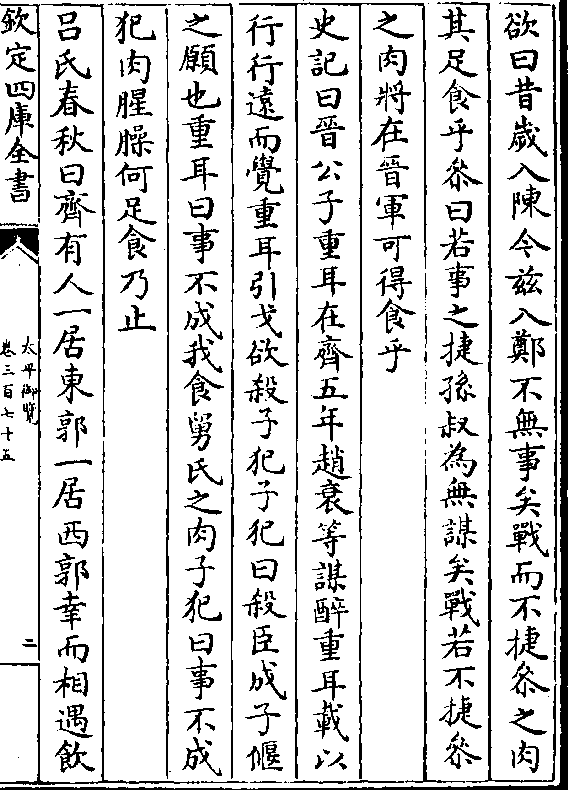 欲曰昔歲入陳今兹入鄭不無事矣戰而不捷叅之肉
其足食乎叅曰若事之捷孫叔為無謀矣戰若不捷叅
之肉將在晉軍可得食乎
史記曰晉公子重耳在齊五年趙衰等謀醉重耳載以
行行遠而覺重耳引戈欲殺子犯子犯曰殺臣成子偃
之願也重耳曰事不成我食舅氏之肉子犯曰事不成
犯肉腥臊何足食乃止
吕氏春秋曰齊有人一居東郭一居西郭幸而相遇飲
欽定四庫全書
太平御覽
卷三百七十五
二